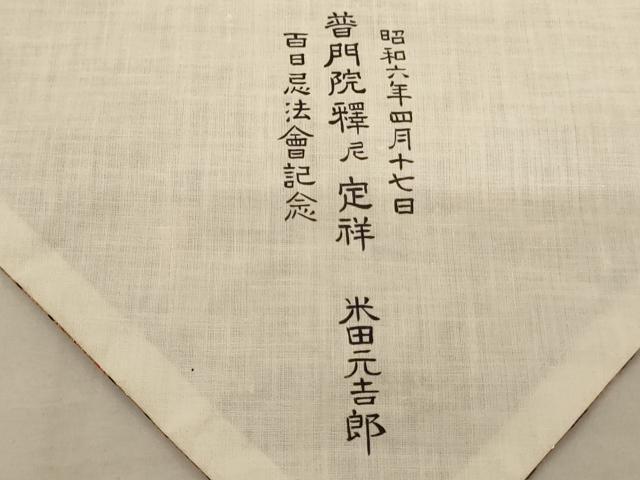 昭和六年四月十七日
普門院釋尼定祥 米田元𠮷郎
百日忌法會記念